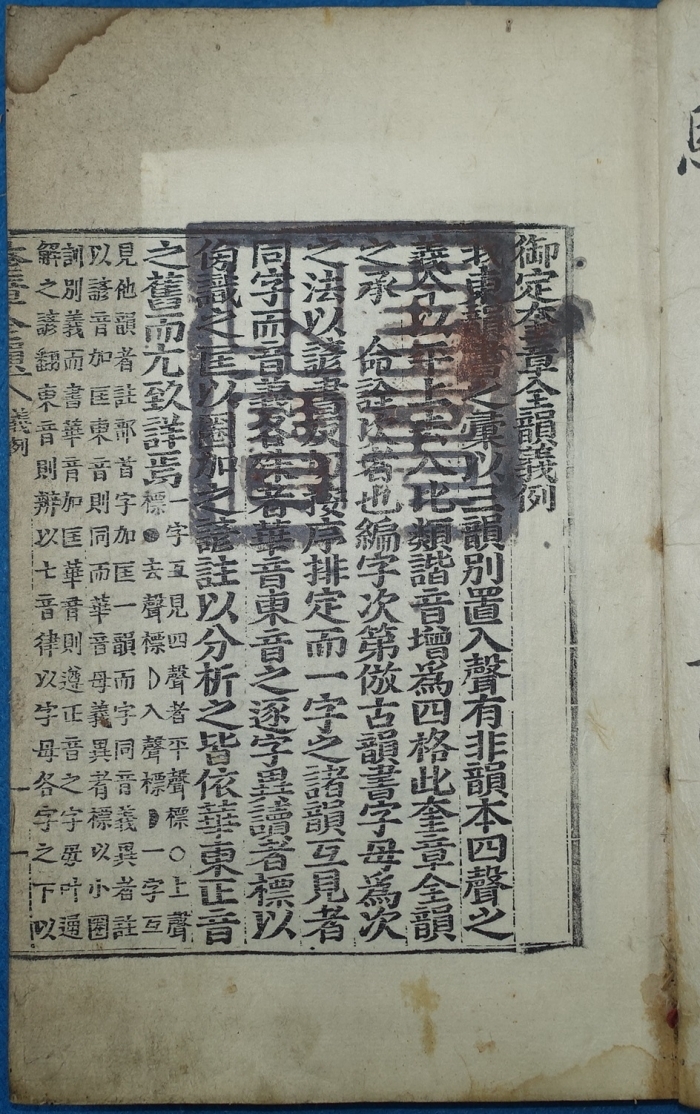 御定奎章全韻義例
我東韻書之彙以三韻別置入聲有非韻本四聲之
義今以平上去入比類諧音增爲四格此奎章全韻
之承 命詮次者也編字次第倣古韻書字母爲次
之法以諺書反切按序排定而一字之諸韻互見者
同字而音義各殊者華音東音之逐字異讀者標以
傍識之匡以圈加之諺註以分析之皆依華東正音
之舊而亢致詳焉
一字互見四聲者平聲標○上聲
標●去聲標◗入聲標◗一字互
見他韻者註部首字加匡一韻而字同音義異者註
以諺音加匡東音則同而華音母義異者標以小圈
訓別義而書華音加匡華音則遵正音之字母叶通
解之諺飜東音則辨以七音律以字母各字之下以
奎章全韻 義例 一